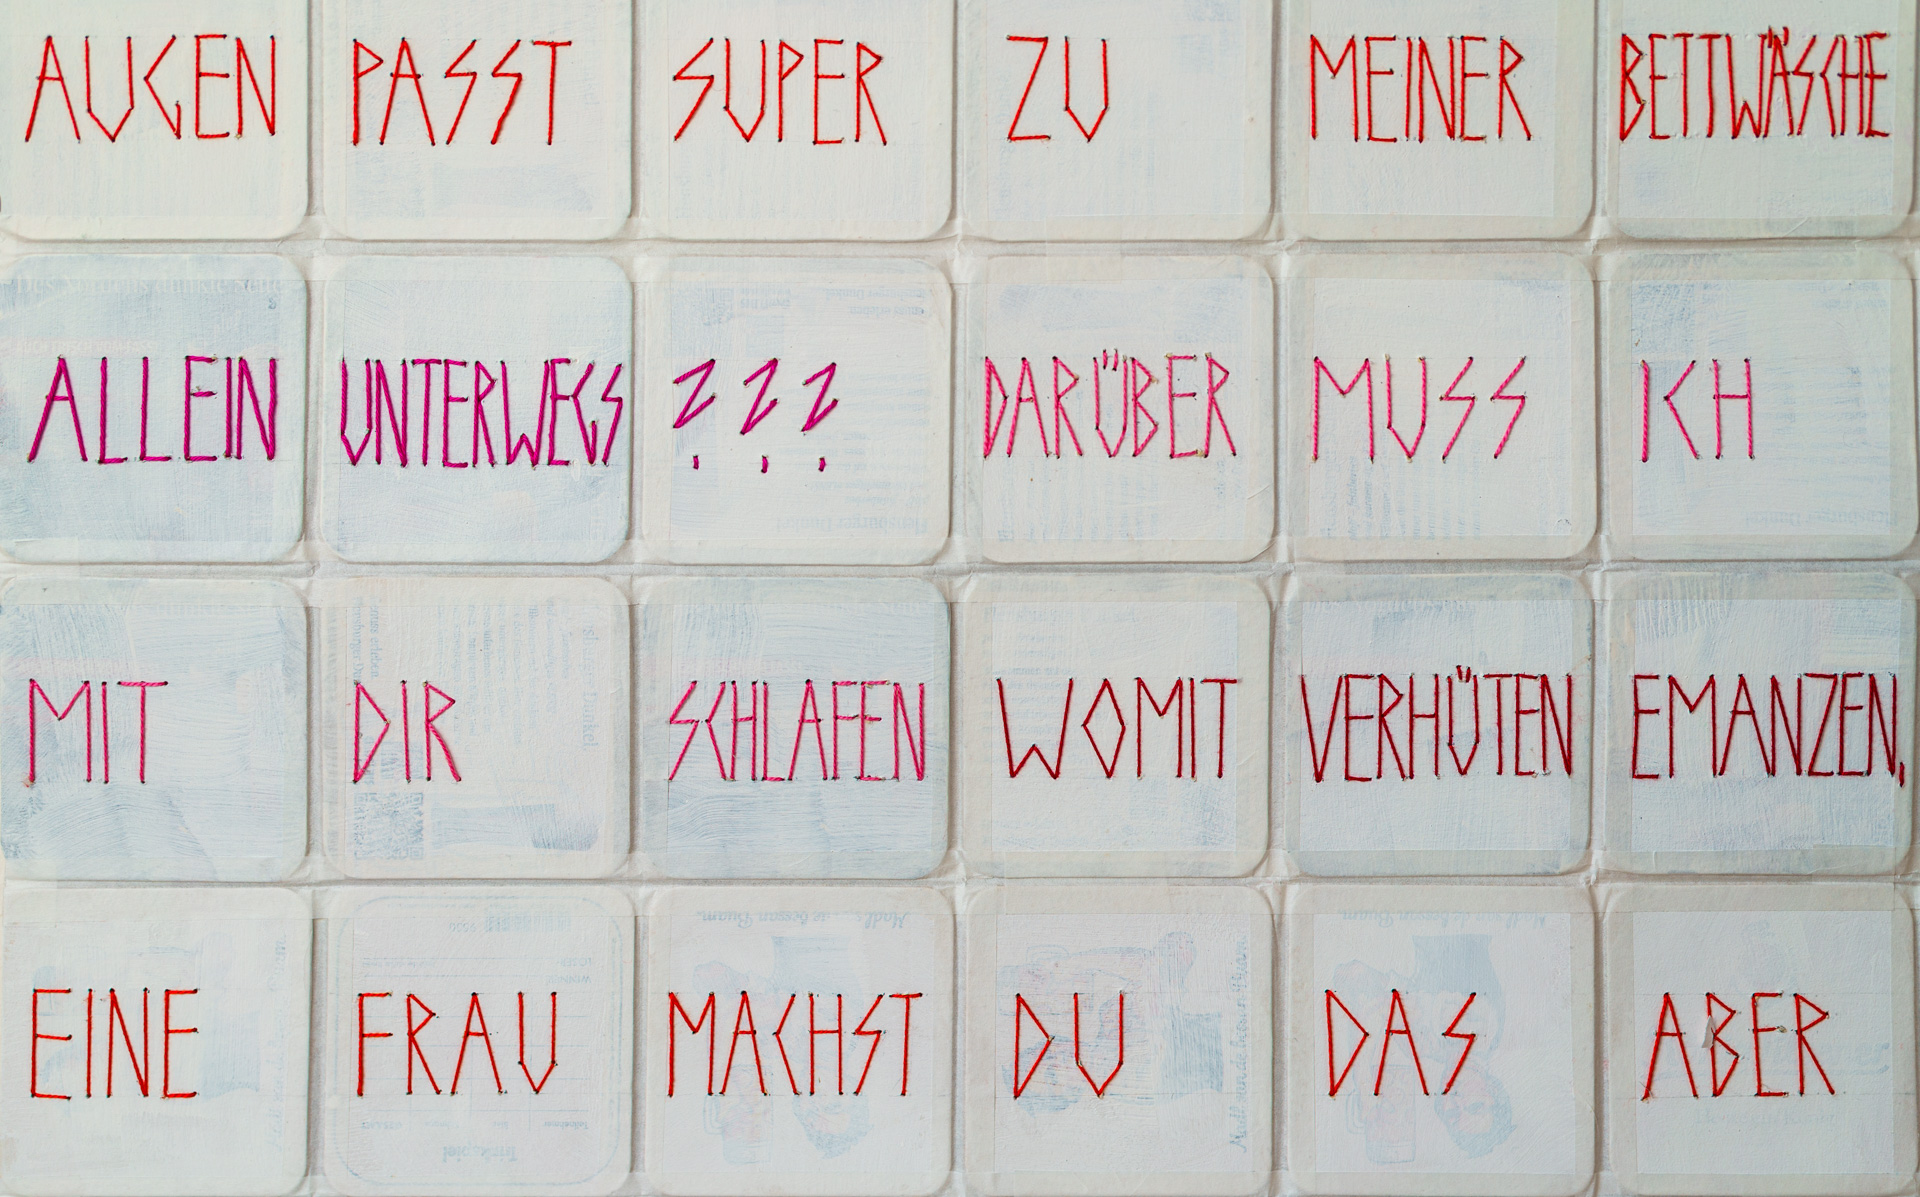 AUGEN PASST SUPER ZU MEINER BETTWÄSCHE
ALLEIN UNTERWEGS ??? DARÜBER MUSS ICH
MIT DIR SCHLAFEN WOMIT VERHÜTEN EMANZEN,
EINE FRAU MACHST DU DAS ABER